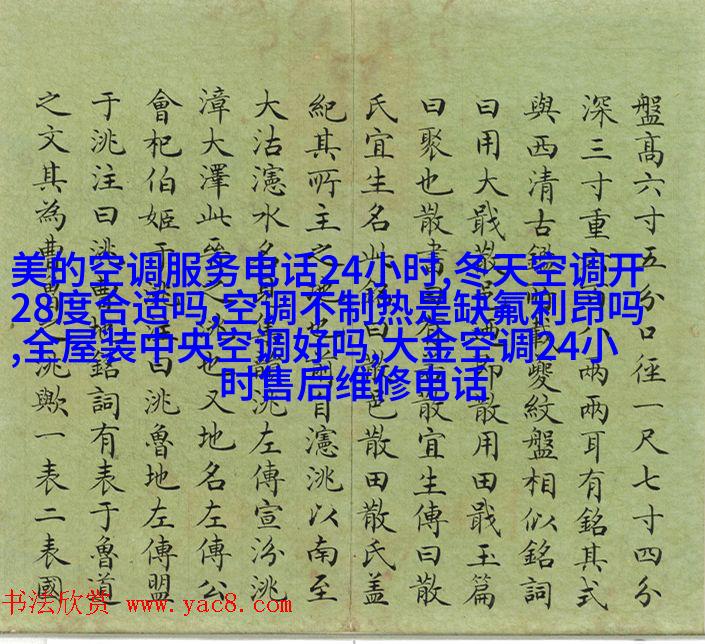 盤高六寸五分口徑一尺七寸四分
深三寸重八兩兩耳有銘其式
與西清古鑑載夔紋盤相似銘詞
曰用大戢散邑迺即散用田戢玉篇
曰聚也散散宜生傳曰散
氏宜生名此銘曰散邑散田散氏蓋
紀其所主之自瀗洮以南至
大沽瀗水名洮左傳宣汾洮
漳大澤此也又地名左傳公
會杞伯姬于洮曰洮魯地左傳盟
于洮注曰洮曹銘詞有表于魯道
之文其為曹洮歟一表二表國
美的空调服务电话24小时,冬天空调开
28度合适吗,空调不制热是缺氟利昂吗
,全屋装中央空调好吗,大金空调24小
时售后维修电话
书法欣赏 www.yac8.com